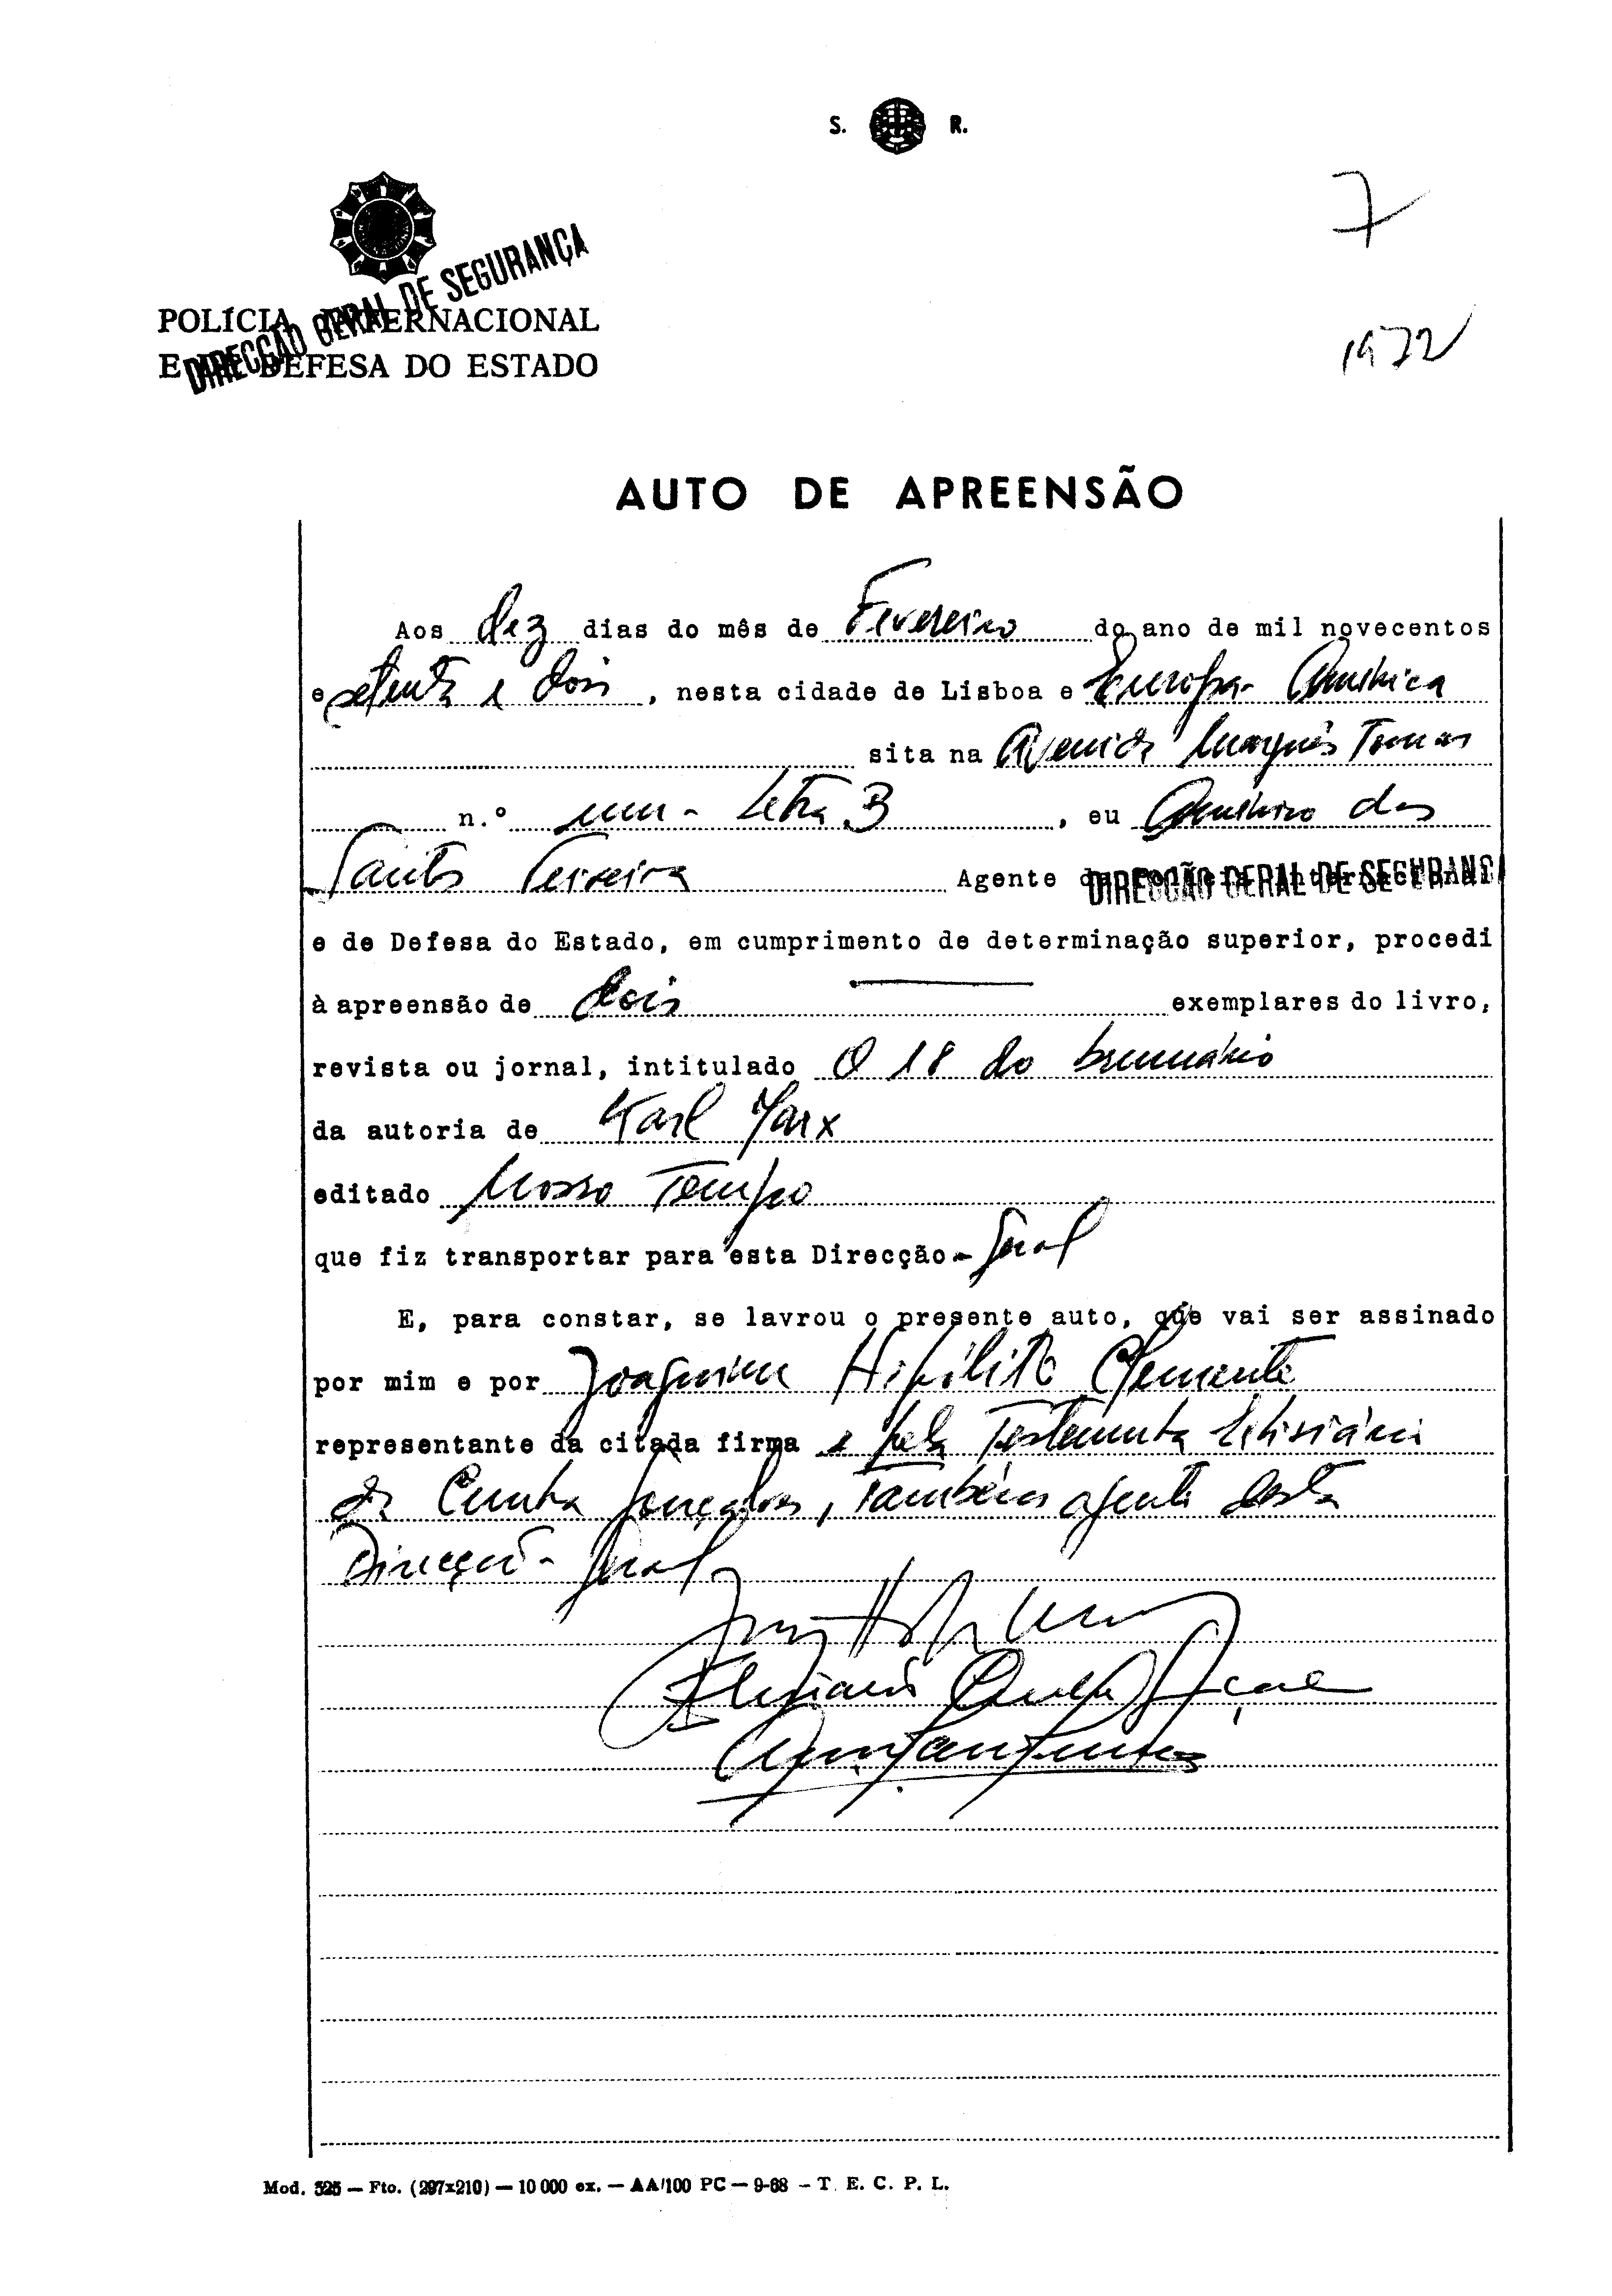 S. R.
7
1972
POLÍCIA INTERNACIONAL
E DE DEFESA DO ESTADO
DIRECÇÃO GERAL DE SEGURANÇA
AUTO DE APREENSÃO
Aos dez dias do mês de Fevereiro do ano de mil novecentos
e setenta e dois, nesta cidade de Lisboa e Europa-América
sita na Avenida Marquês Tomar
n.º um - Letra B, eu Amihiro dos
Santos Teixeira Agente da DIRECÇÃO GERAL DE SEGURANÇ
e de Defesa do Estado, em cumprimento de determinação superior, procedi
à apreensão de dois exemplares do livro,
revista ou jornal, intitulado O 18 do brumário
da autoria de Karl Marx
editado Nosso Tempo
que fiz transportar para esta Direcção-Geral
E, para constar, se lavrou o presente auto, que vai ser assinado
por mim e por Joaquim Hipólito Clemente
representante da citada firma e pela Testemunha
da Cunha Gonçalves, também agente desta
Direcção-Geral
Cunha
Mod. 525 — Fto. (297x210) — 10 000 ex. — AA/100 PC — 9-68 - T. E. C. P. L.